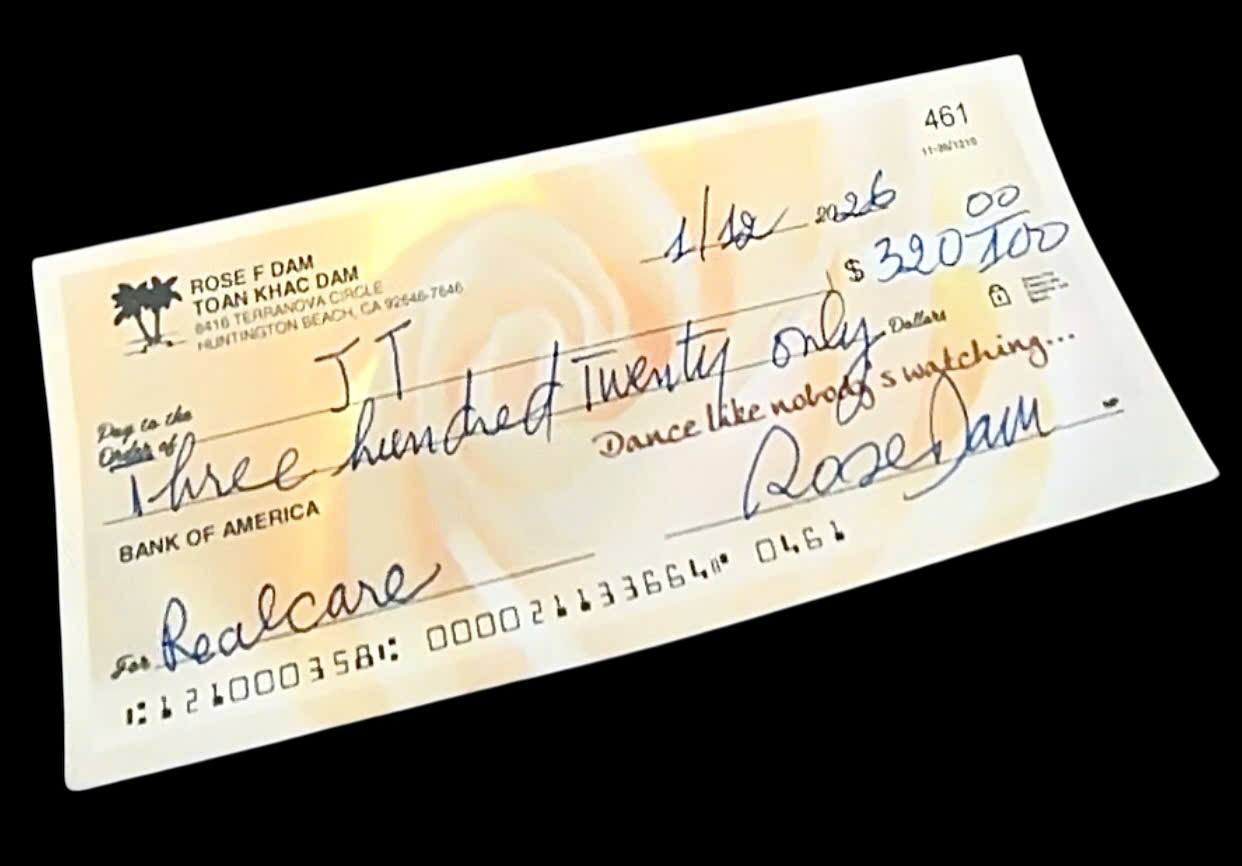 461
11-35/1210
1/12 2026
ROSE F DAM
TOAN KHAC DAM
6416 TERRANOVA CIRCLE
HUNTINGTON BEACH, CA 92646-7646
Pay to the
Order of JT $ 320 00/100
Three hundred Twenty only Dollars
Dance like nobody's watching...
BANK OF AMERICA
Rose Dam
For Realcare
⑆121000358⑆ 000021133664⑈ 0461